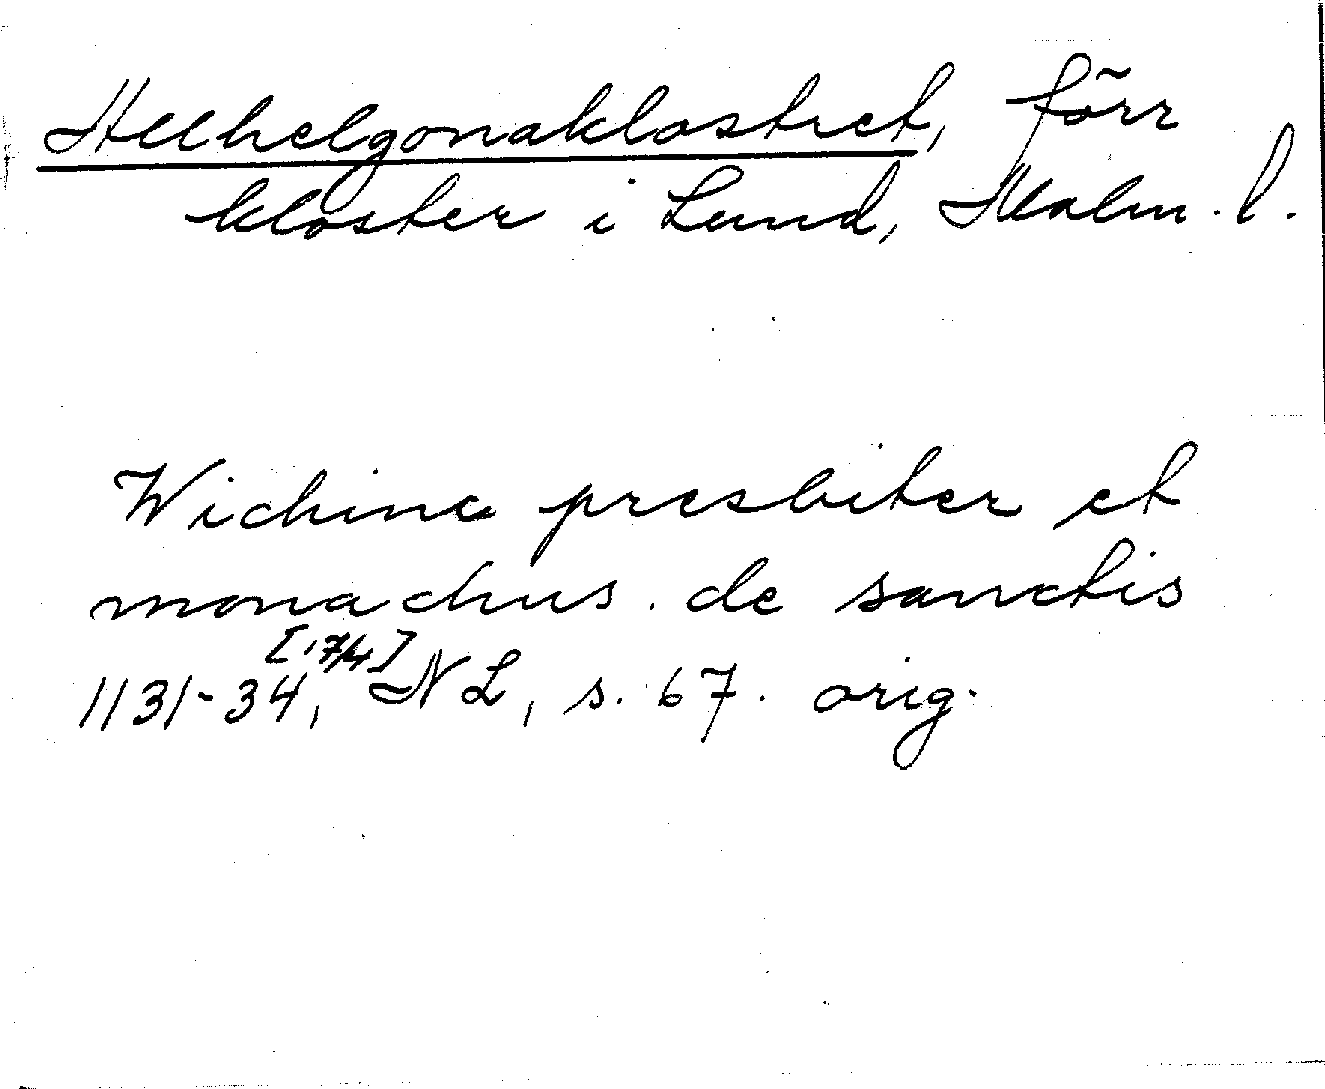 Allhelgonaklostret, förr
kloster i Lund, Malm. l.
Wichinc presbiter et
monachus. de sanctis
[17/4]
1131-34, NL, s. 67. orig.